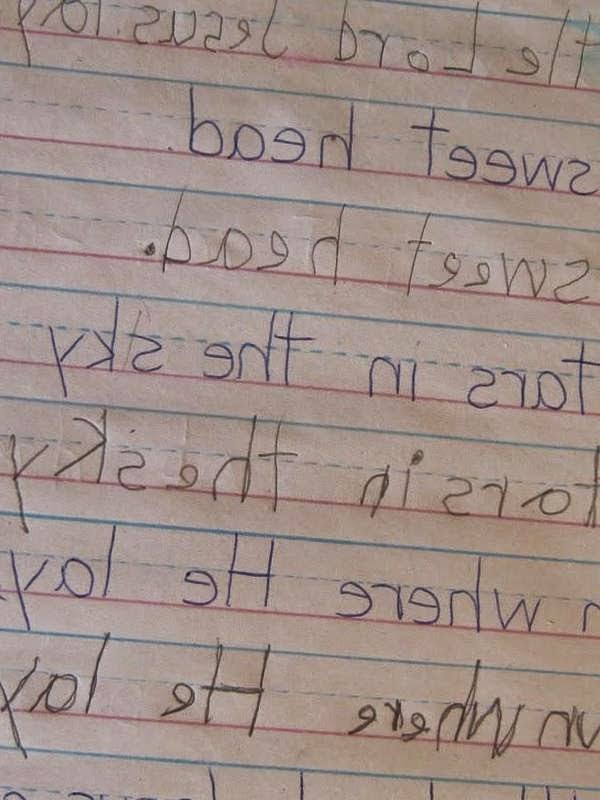 Lord Jesus
sweet head.
sweet head.
tars in the sky
tars in the sky
n where He lay
wn where He lay